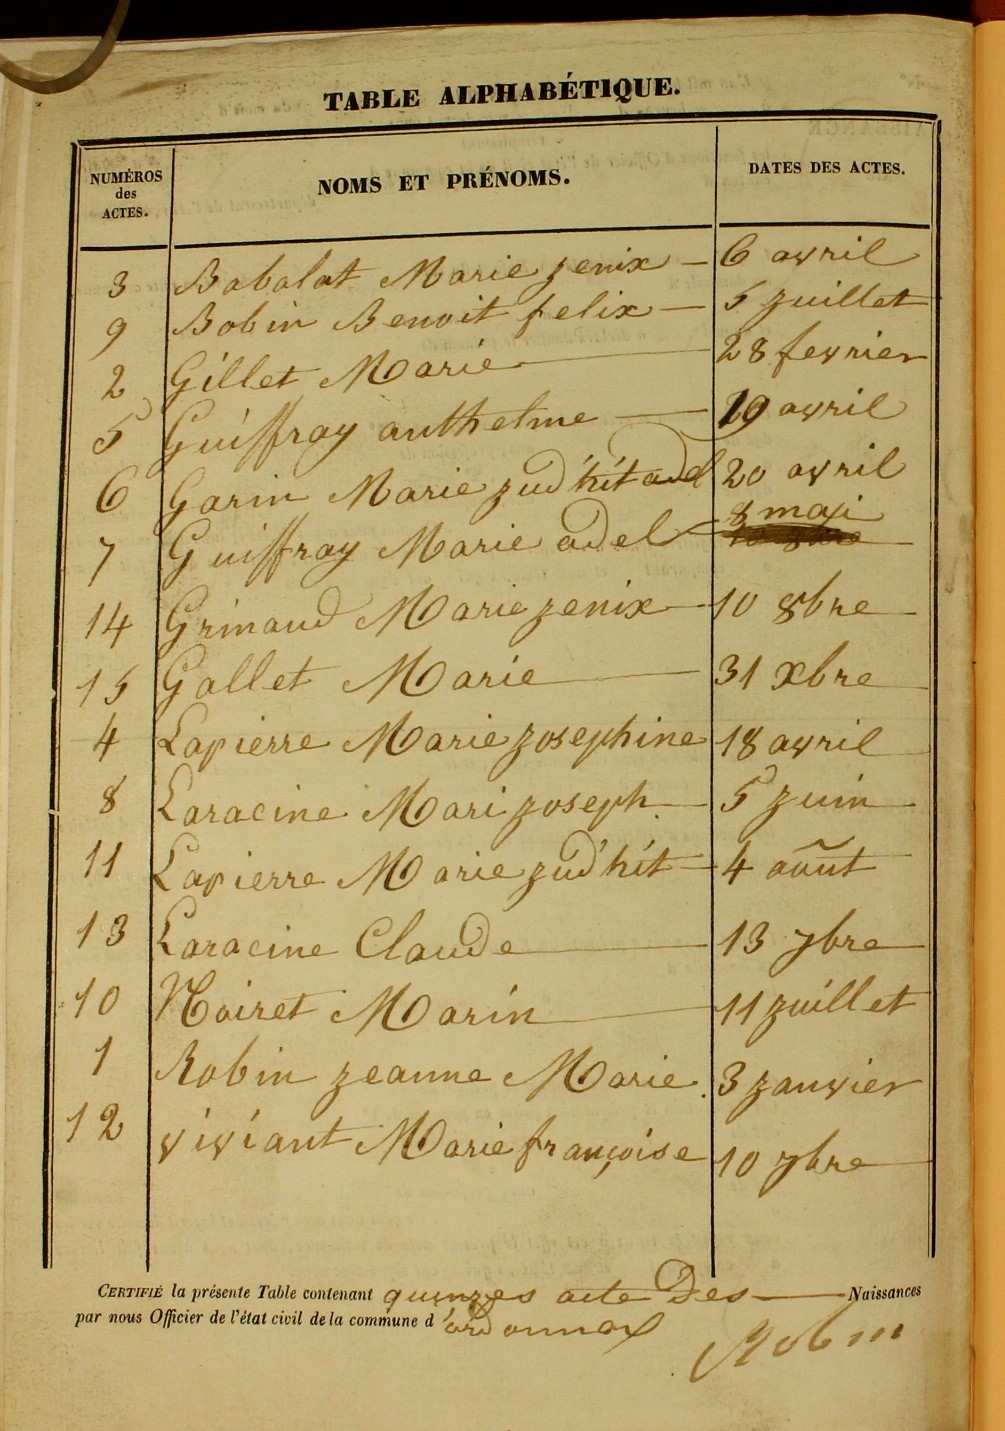 TABLE ALPHABÉTIQUE.
NUMÉROS des ACTES. NOMS ET PRÉNOMS. DATES DES ACTES.
3 Babolat Marie zenix 6 avril
9 Bobin Benoit felix 5 zuillet
2 Gillet Marie 28 fevrier
5 Guiffray anthelme 19 avril
6 Garin Marie zud'hit adel 20 avril
7 Guiffray Marie adel 8 maji
14 Grinaud Marie zenix 10 8bre
15 Gallet Marie 31 xbre
4 Lapierre Marie zosephine 18 avril
8 Laracine Mari zoseph 5 zuin
11 Lapierre Marie zud'hit 4 aout
13 Laracine Claude 13 7bre
10 Noiret Marin 11 zuillet
1 Robin zeanne Marie 3 zanvier
12 viviant Marie françoise 10 7bre
CERTIFIÉ la présente Table contenant quinzes acte Des Naissances
par nous Officier de l'état civil de la commune d'ordonnax
Robin